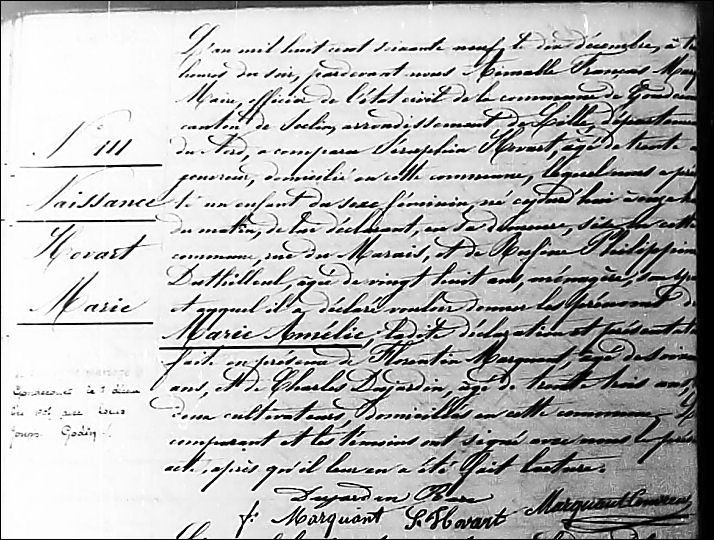 N° 111
Naissance
Hovart
Marie
L'an mil huit cent soixante neuf, le dix décembre, à
heures du soir, pardevant nous Aimable François Marq
Maire, officier de l'état civil de la commune de Gondecou
canton de Seclin, arrondissement de Lille, départeme
du Nord, a comparu Séraphin Hovart, âgé de trente
domicilié en cette commune, lequel nous a pré
té un enfant du sexe féminin, né cejourd'hui à onze h
du matin, de lui déclarant, en sa demeure, sise en cette
commune, rue du Marais, et de Rufine Philippine
Duthilleul, âgée de vingt huit ans, ménagère, son ép
et auquel il a déclaré vouloir donner les prénoms de
Marie Amélie, ladite déclaration et présentati
faite en présence de Florentin Marquant, âgé de soixan
ans, et de Charles Dujardin, âgé de trente trois ans,
deux cultivateurs, domiciliés en cette commune,
comparant et les témoins ont signé avec nous le prése
acte, après qu'il leur en a été fait lecture.
Dujardin
f. Marquant S. Hovart Marquant
Gondecourt le
Godin